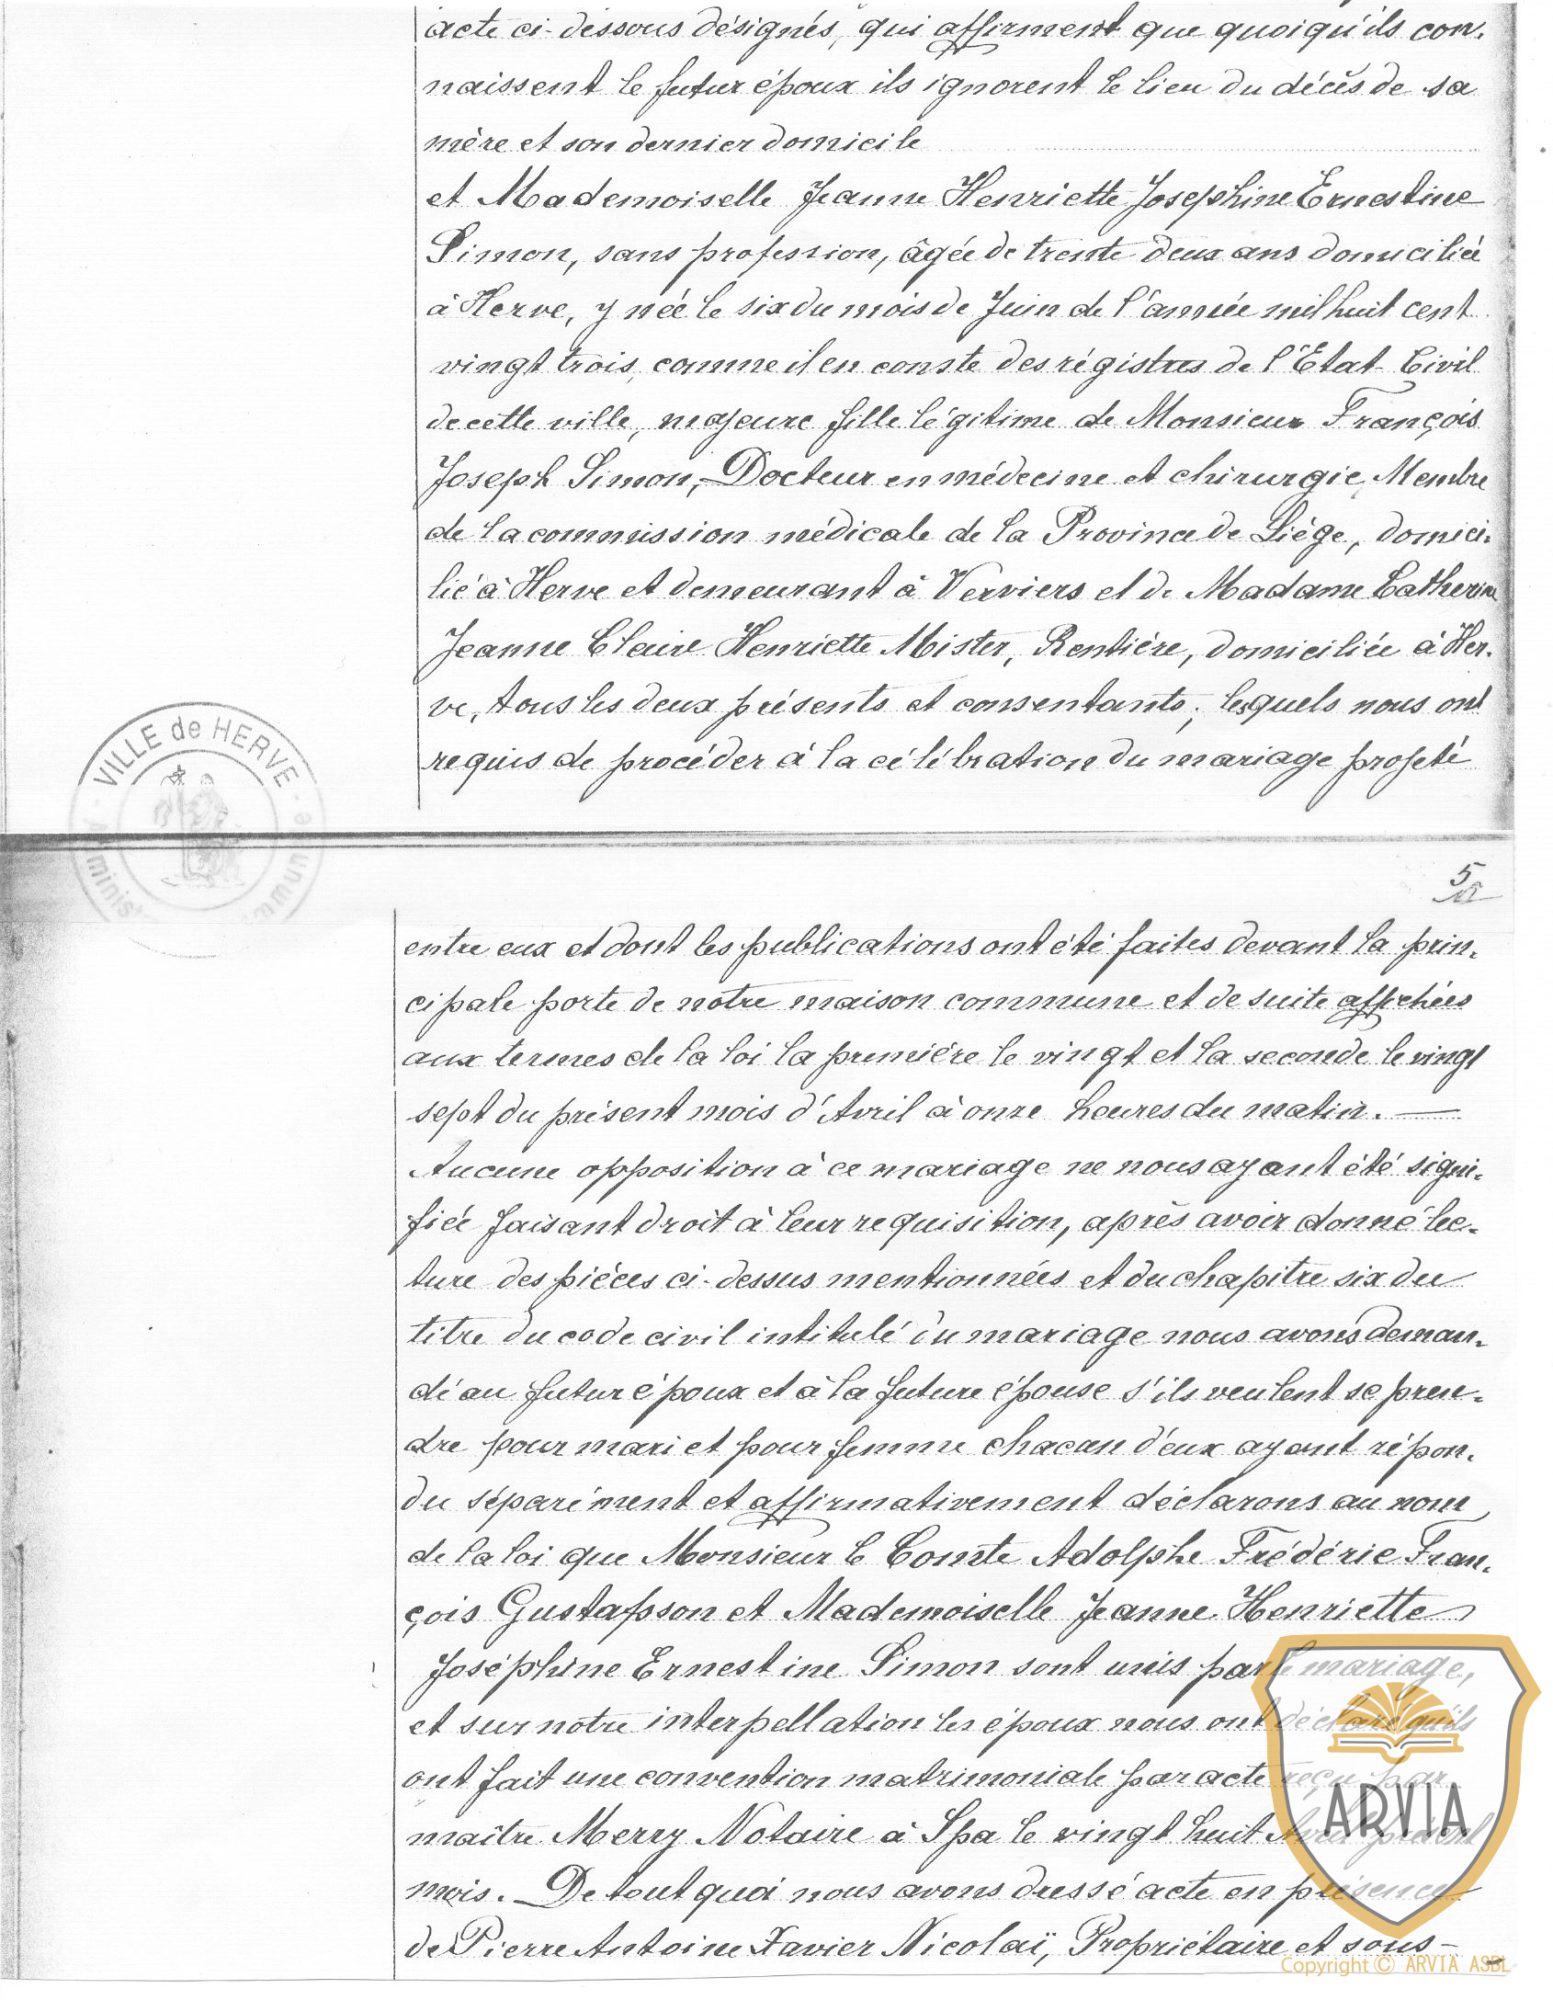 acte ci-dessous désignés, qui affirment que quoiqu'ils con-
naissent le futur époux ils ignorent le lieu du décès de sa
mère et son dernier domicile
et Mademoiselle Jeanne Henriette Josephine Ernestine
Simon, sans profession, âgée de trente deux ans domiciliée
à Herve, y née le six du mois de Juin de l'année mil huit cent
vingt trois, comme il en conste des régistres de l'Etat-Civil
de cette ville, majeure fille légitime de Monsieur François
Joseph Simon, Docteur en médecine et chirurgie, Membre
de la commission médicale de la Province de Liége, domici-
lié à Herve et demeurant à Verviers et de Madame Catherine
Jeanne Claire Henriette Mister, Rentière, domiciliée à Her-
ve, tous les deux présents et consentants; lesquels nous ont
requis de procéder à la célébration du mariage projeté
VILLE de HERVE
5
entre eux et dont les publications ont été faites devant la prin-
cipale porte de notre maison commune et de suite affichées
aux termes de la loi la première le vingt et la seconde le vingt
sept du présent mois d'Avril à onze heures du matin. —
Aucune opposition à ce mariage ne nous ayant été signi-
fiée faisant droit à leur requisition, après avoir donné lec-
ture des pièces ci-dessus mentionnées et du chapitre six du
titre du code civil intitulé du mariage nous avons deman-
dé au futur époux et à la future épouse s'ils veulent se pren-
dre pour mari et pour femme chacun d'eux ayant répon-
du séparément et affirmativement déclarons au nom
de la loi que Monsieur le Comte Adolphe Frédéric Fran-
çois Gustafsson et Mademoiselle Jeanne Henriette
Joséphine Ernestine Simon sont unis par le mariage,
et sur notre interpellation les époux nous ont déclaré qu'ils
ont fait une convention matrimoniale par acte reçu par
maître Merry Notaire à Spa le vingt huit Avril présent
mois. De tout quoi nous avons dressé acte en présence
de Pierre Antoine Xavier Nicolaï, Propriétaire et sous-
ARVIA
Copyright © ARVIA ASBL